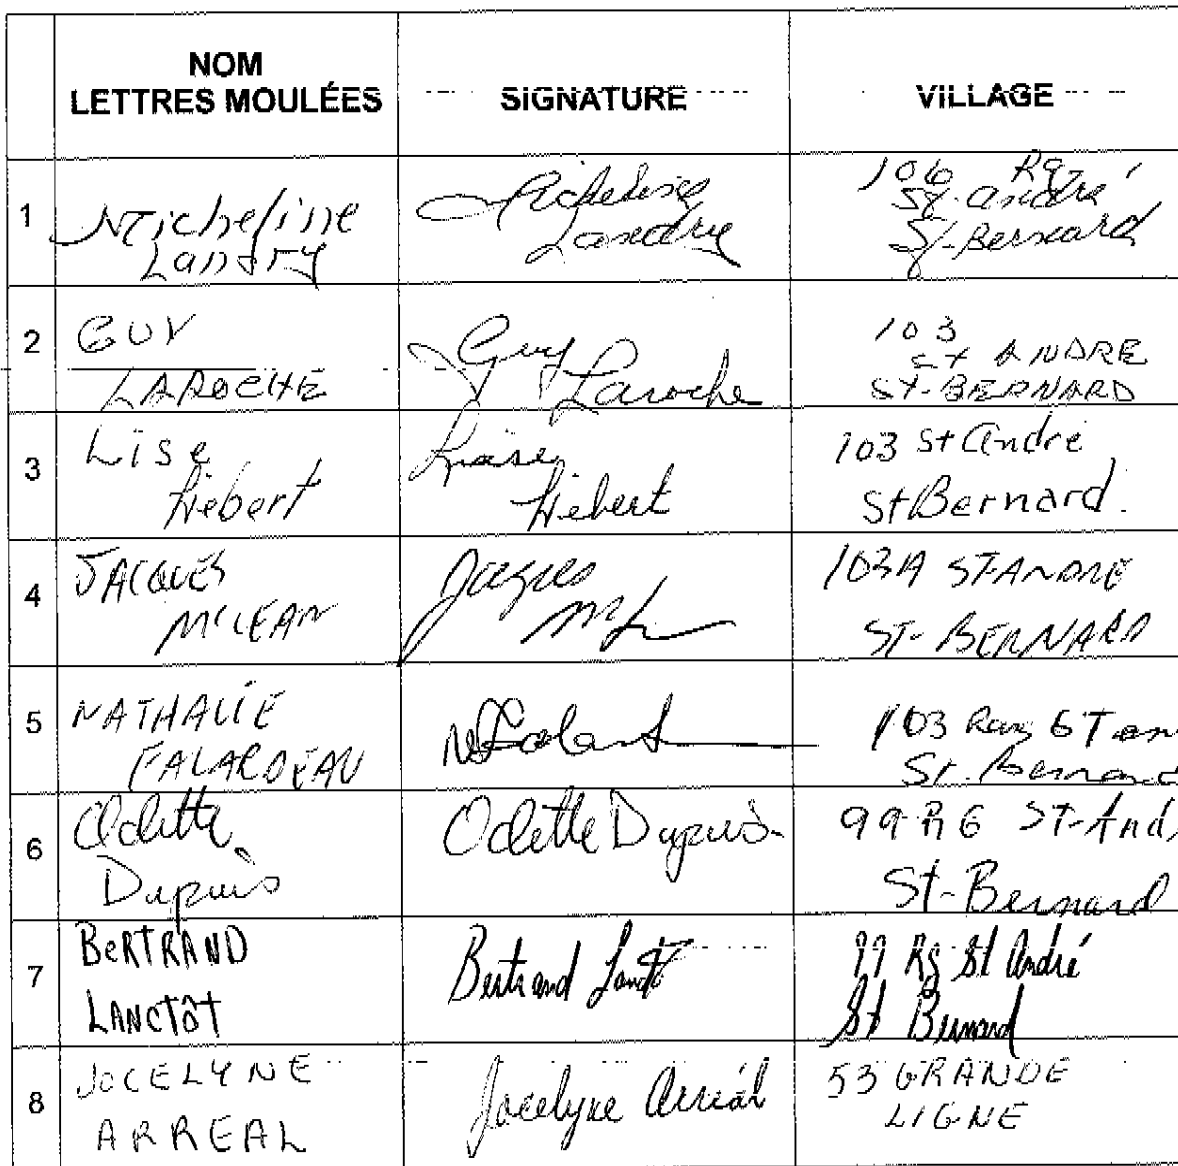 NOM
LETTRES MOULÉES
SIGNATURE
VILLAGE
1
Micheline
Landry
Micheline
Landry
106 Rg
St. André
St-Bernard
2
GUY
LAROCHE
Guy
Laroche
103
ST ANDRE
ST-BERNARD
3
Lise
Hebert
Lise
Hebert
103 St André
St Bernard.
4
JACQUES
MCLEAN
Jacques
103A ST-ANDRE
ST-BERNARD
5
NATHALIE
FALARDEAU
103 Rang ST
St. Bernard
6
Odette
Dupuis
Odette Dupuis
99 RG ST-And
St-Bernard
7
BERTRAND
LANCTÔT
Bertrand Lanctôt
99 Rg St André
St Bernard
8
JOCELYNE
ARREAL
Jocelyne Arréal
53 GRANDE
LIGNE